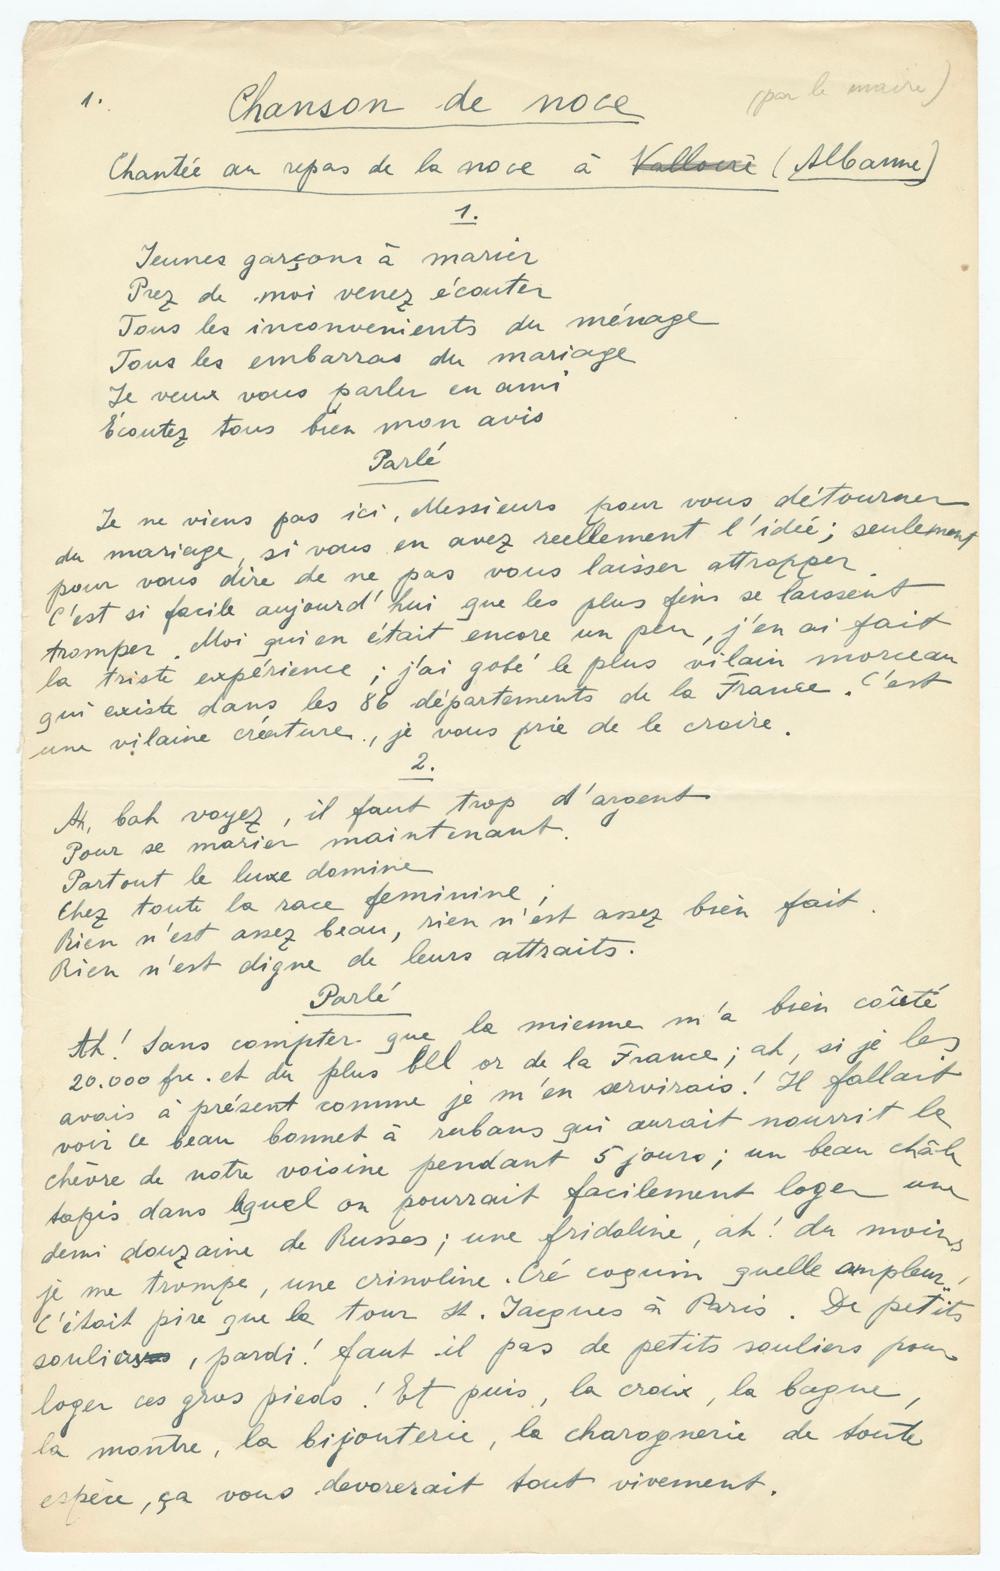 1.
Chanson de noce
(par le maire)
Chantée au repas de la noce à Valloire (Albanne)
1.
Jeunes garçons à marier
Prez de moi venez écouter
Tous les inconvenients du ménage
Tous les embarras du mariage
Je veux vous parler en ami
Écoutez tous bien mon avis
Parlé
Je ne viens pas ici, Messieurs pour vous détourner
du mariage, si vous en avez reellement l'idée; seulement
pour vous dire de ne pas vous laisser attrapper.
C'est si facile aujourd'hui que les plus fins se laissent
tromper. Moi qui en était encore un peu, j'en ai fait
la triste expérience; j'ai gobé le plus vilain morceau
qui existe dans les 86 départements de la France. C'est
une vilaine créature, je vous prie de le croire.
2.
Ah, bah voyez, il faut trop d'argent
Pour se marier maintenant.
Partout le luxe domine
Chez toute la race feminine;
Rien n'est assez beau, rien n'est assez bien fait.
Rien n'est digne de leurs attraits.
Parlé
Ah! Sans compter que la mienne m'a bien coûté
20.000 frs. et du plus bel or de la France; ah, si je les
avais à présent comme je m'en servirais! Il fallait
voir ce beau bonnet à rubans qui aurait nourrit la
chèvre de notre voisine pendant 5 jours; un beau châle
tapis dans lequel on pourrait facilement loger une
demi douzaine de Russes; une fridoline, ah! du moins
je me trompe, une crinoline. Cré coquin quelle ampleur!
C'était pire que la tour St. Jacques à Paris. De petits
souliers, pardi! faut-il pas de petits souliers pour
loger ces gros pieds! Et puis, la croix, la bague,
la montre, la bijouterie, la charognerie de toute
espèce, ça vous devorerait tout vivement.